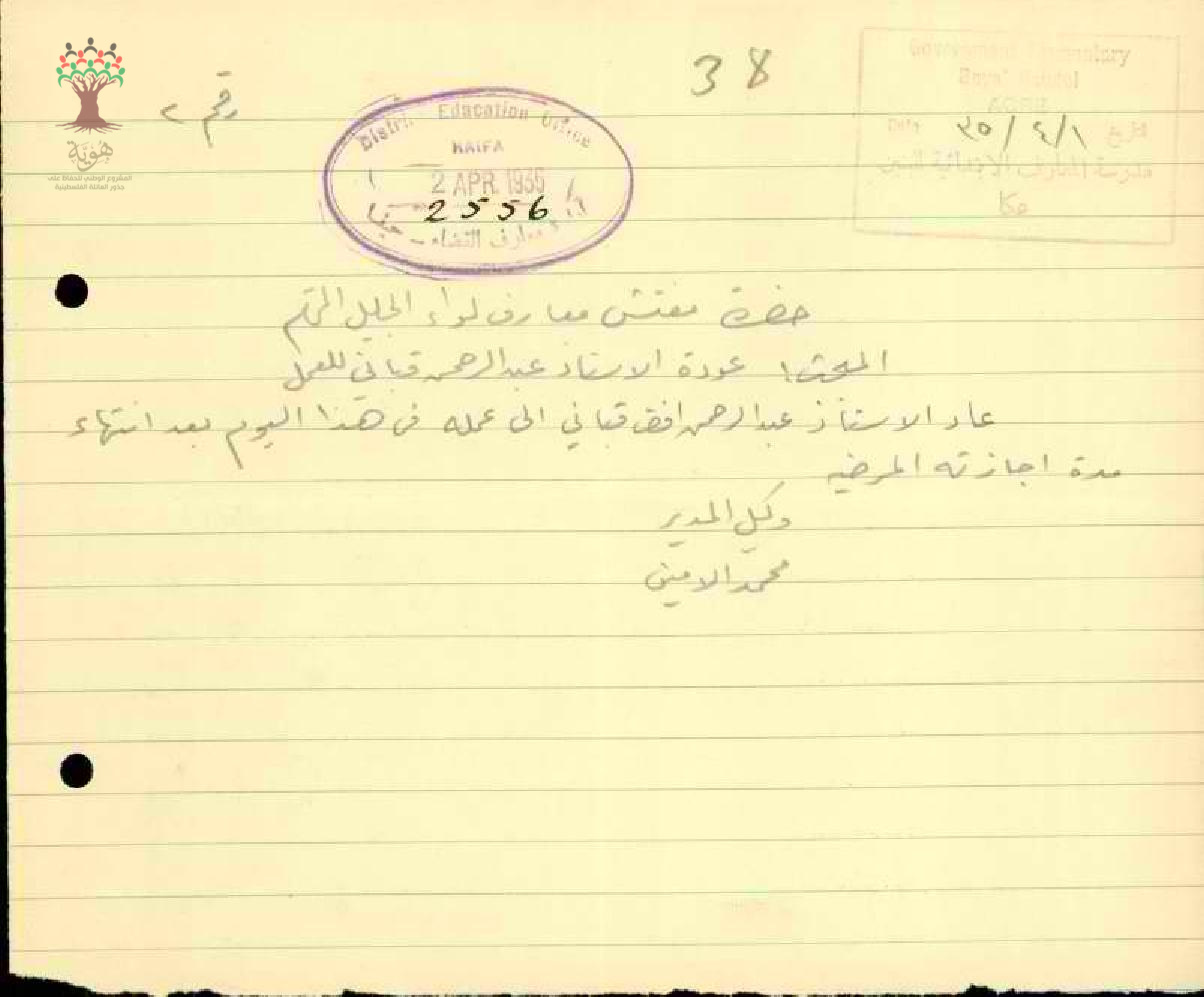 38
Government Elementary
Boys' School
ACRE
Date ٣٥/٤/١ تاريخ
مدرسة المعارف الابتدائية للبنين
عكا
رقم ٢
District Education Office
HAIFA
2 APR 1935
2556
معارف القضاء - حيفا
هَوِيَّة
المشروع الوطني للحفاظ على
جذور العائلة الفلسطينية
حضرة مفتش معارف لواء الجليل المحترم
المبحث: عودة الاستاذ عبدالرحمن قباني للعمل
عاد الاستاذ عبدالرحمن افندي قباني الى عمله في هذا اليوم بعد انتهاء
مدة اجازته المرضيه
وكيل المدير
محمد الامين